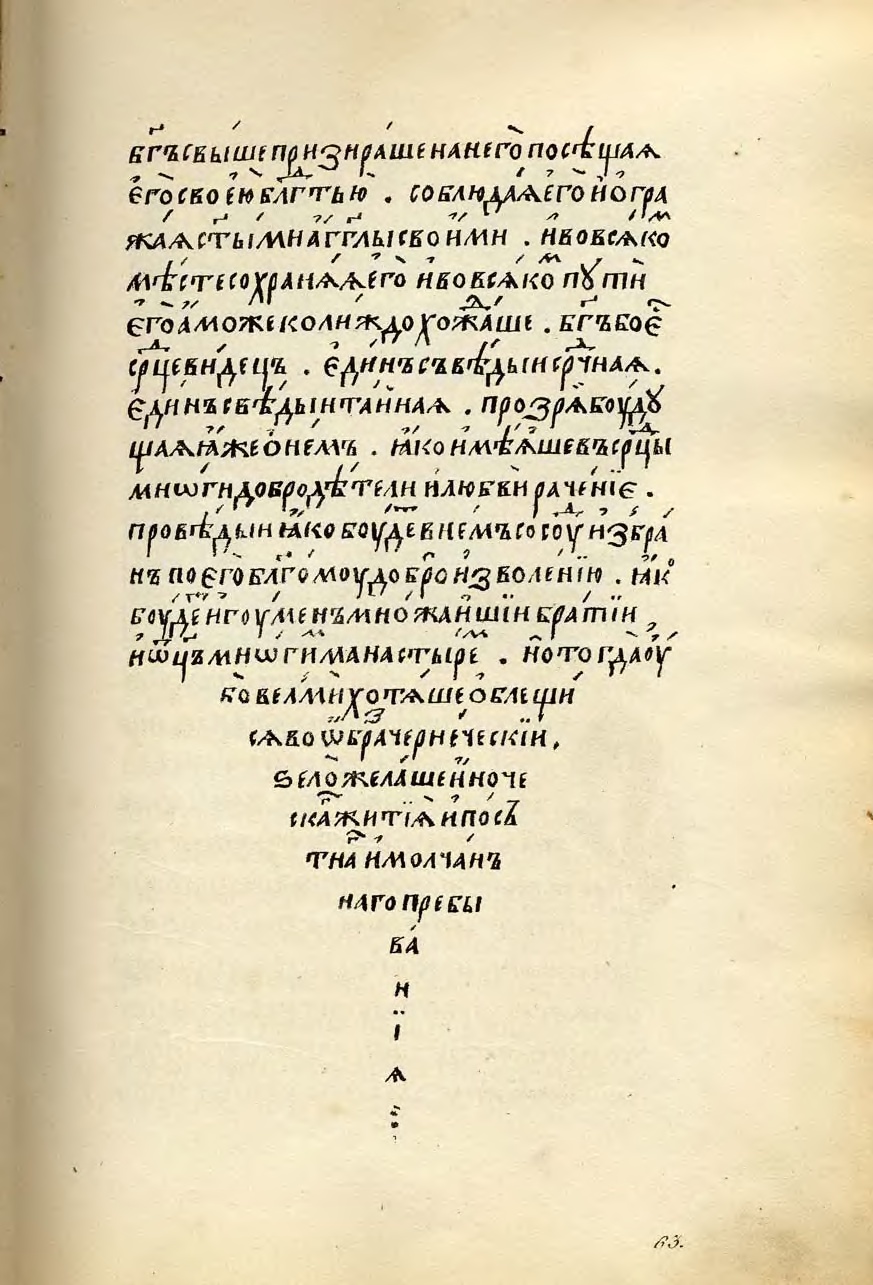 бг҃ъ свыше призираше на него посѣщаѧ
его своею блгⷣтью . соблюдаѧ его и огра
жаѧ ст҃ыми агг҃лы своими . и во всѧкоⷨ
мѣсте сохранѧѧ его и во всѧкоⷨ пꙋти
его аможе колиждо хожⷣаше . бг҃ъ бо е
срⷣцевидецъ . единъ съвѣдыи срⷣчнаѧ .
единъ свѣдыи таинаѧ . прозрѧ боудꙋ
щаѧ ꙗже о немъ . ꙗко имѣѧше въ срⷣцы
мнѡги добродѣтели и любви рачение .
провѣдыи ꙗко боудеⷮ в немъ сосоуⷣ избра
нъ по его блг҃омоу доброизволенїю . ꙗкͦ
боудеⷮ игоуменъ множаишїи братїи ,
и ѿц҃ъ мнѡгиⷨ манастыреⷨ . но тогда оу
бо велми хотѧше облещи
сѧ во ѡбраⷥ чернеческїи ,
ѕело желаше иноче
скаⷢ҇ житїѧ и посⷭ҇
тнаⷢ҇ и молчанъ
наго пребы
ва
н
ї
ѧ
63.